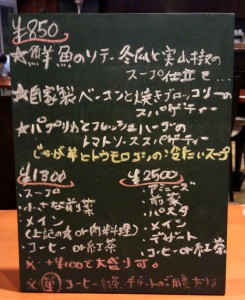 ¥850
★鮮魚のソテー 冬瓜と実山椒の
スープ仕立て
★自家製ベーコンと焼きブロッコリーの
スパゲティー
★パプリカとフレッシュハーブの
トマトソーススパゲティー
じゃが芋とトウモロコシの冷たいスープ
¥1300
・スープ
・小さな前菜
・メイン
(上記の魚or肉料理)
・コーヒーor紅茶
¥2500
・前菜
・パスタ
・メイン
・デザート
・コーヒーor紅茶
※ +¥100で大盛り可。
コーヒー 紅茶 デザートのご用意